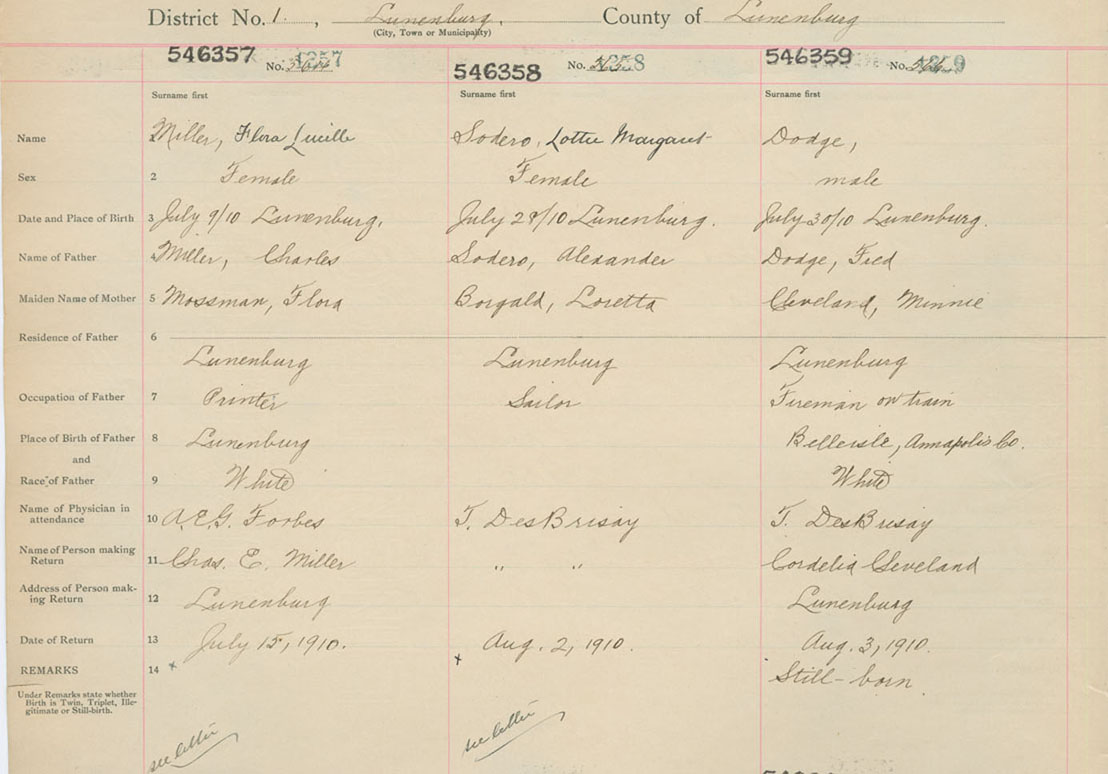 District No. 1. , Lunenburg. County of Lunenburg
(City, Town or Municipality)
546357 No. 546358 No. 546359 No.
Surname first Surname first Surname first
Name 1 Miller, Flora Lucille Sodero, Lottie Margaret Dodge,
Sex 2 Female Female male
Date and Place of Birth 3 July 9/10 Lunenburg. July 28/10 Lunenburg. July 30/10 Lunenburg.
Name of Father 4 Miller, Charles Sodero, Alexander Dodge, Fred
Maiden Name of Mother 5 Mossman, Flora Borgald, Loretta Cleveland, Minnie
Residence of Father 6
Lunenburg Lunenburg Lunenburg
Occupation of Father 7 Printer Sailor Fireman on train
Place of Birth of Father 8 Lunenburg Belleisle, Annapolis Co.
and
Race of Father 9 White White
Name of Physician in
attendance 10 A.E.G. Forbes T. DesBrisay T. DesBrisay
Name of Person making
Return 11 Chas. E. Miller " " Cordelia Cleveland
Address of Person mak-
ing Return 12 Lunenburg Lunenburg
Date of Return 13 July 15, 1910. Aug. 2, 1910. Aug. 3, 1910.
REMARKS 14 x x Still-born
Under Remarks state whether
Birth is Twin, Triplet, Ille-
gitimate or Still-birth.
see letter see letter